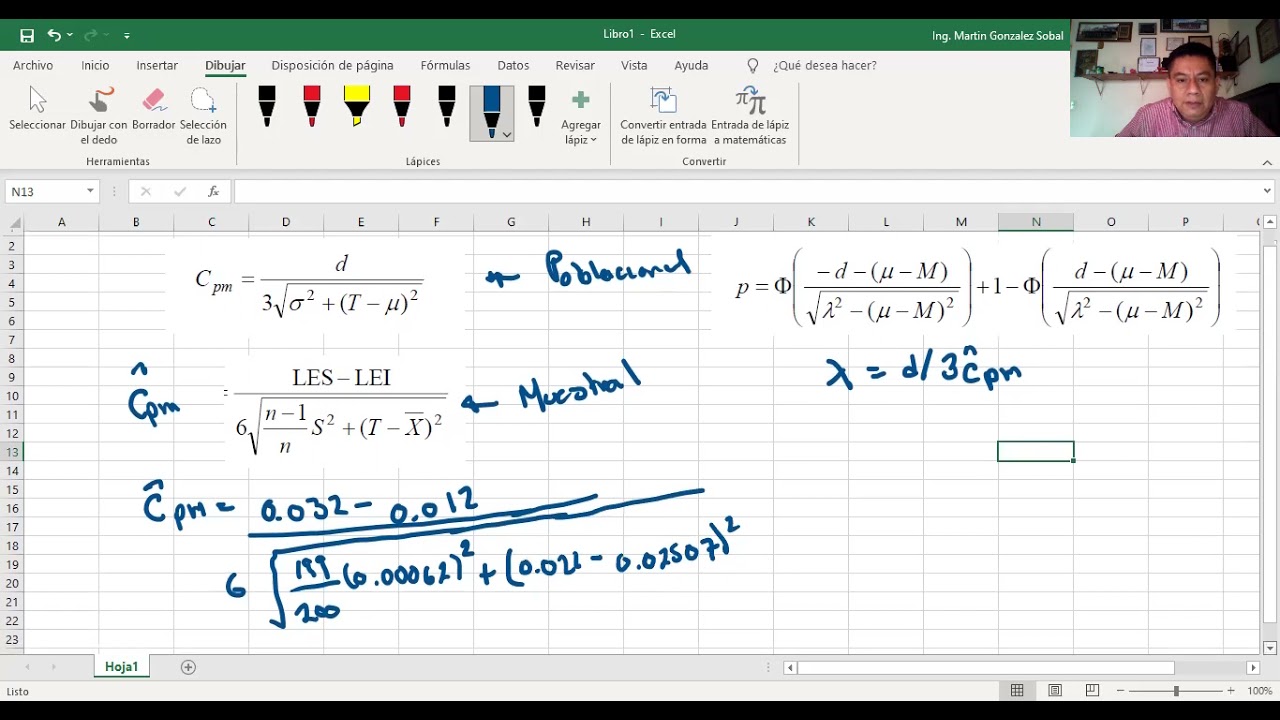 Libro1 - Excel
Ing. Martin Gonzalez Sobal
Archivo Inicio Insertar Dibujar Disposición de página Fórmulas Datos Revisar Vista Ayuda ¿Qué desea hacer?
Seleccionar Dibujar con el dedo Borrador Selección de lazo Agregar lápiz Convertir entrada de lápiz en forma Entrada de lápiz a matemáticas
Herramientas Lápices Convertir
N13 fx
A B C D E F G H I J K L M N O P
2
3
4
5
6
7
8
9
10
11
12
13
14
15
16
17
18
19
20
21
22
23
C pm = d / 3√(σ² + (T − μ)²) ← Poblacional
p = Φ( (−d − (μ − M)) / √(λ² − (μ − M)²) ) + 1 − Φ( (d − (μ − M)) / √(λ² − (μ − M)²) )
Ĉpm = (LES − LEI) / 6√((n − 1)/n S² + (T − X̅)²) ← Muestral
λ = d/3Ĉpm
Ĉpm = 0.032 − 0.012
6 √(199/200 (0.00062)² + (0.022 − 0.02507)²)
Hoja1
Listo
100%